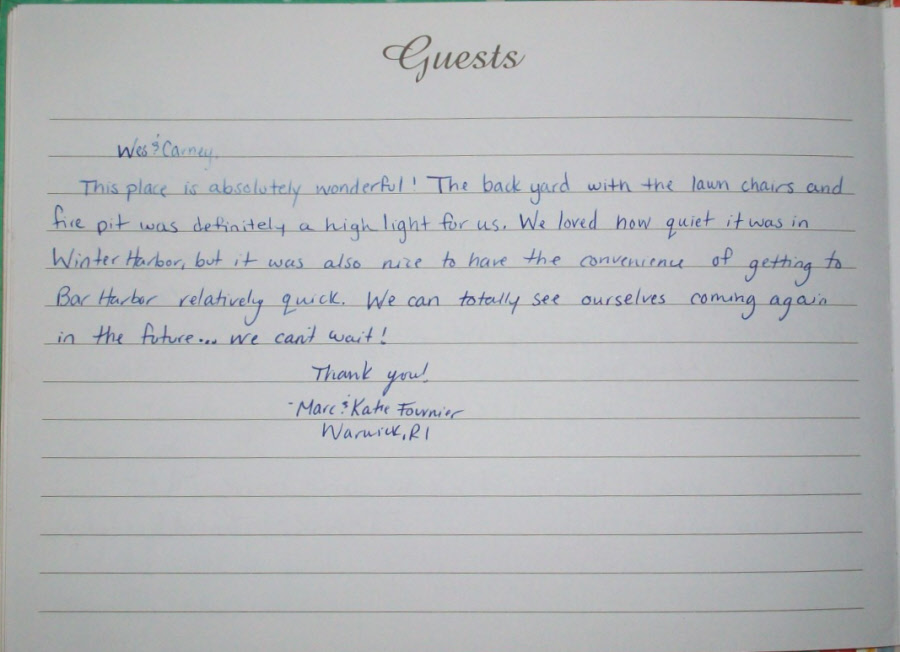 Guests
Wes & Carney,
This place is absolutely wonderful! The back yard with the lawn chairs and
fire pit was definitely a high light for us. We loved how quiet it was in
Winter Harbor, but it was also nice to have the convenience of getting to
Bar Harbor relatively quick. We can totally see ourselves coming again
in the future... we can't wait!
Thank you!
-Marc & Katie Fournier
Warwick, RI